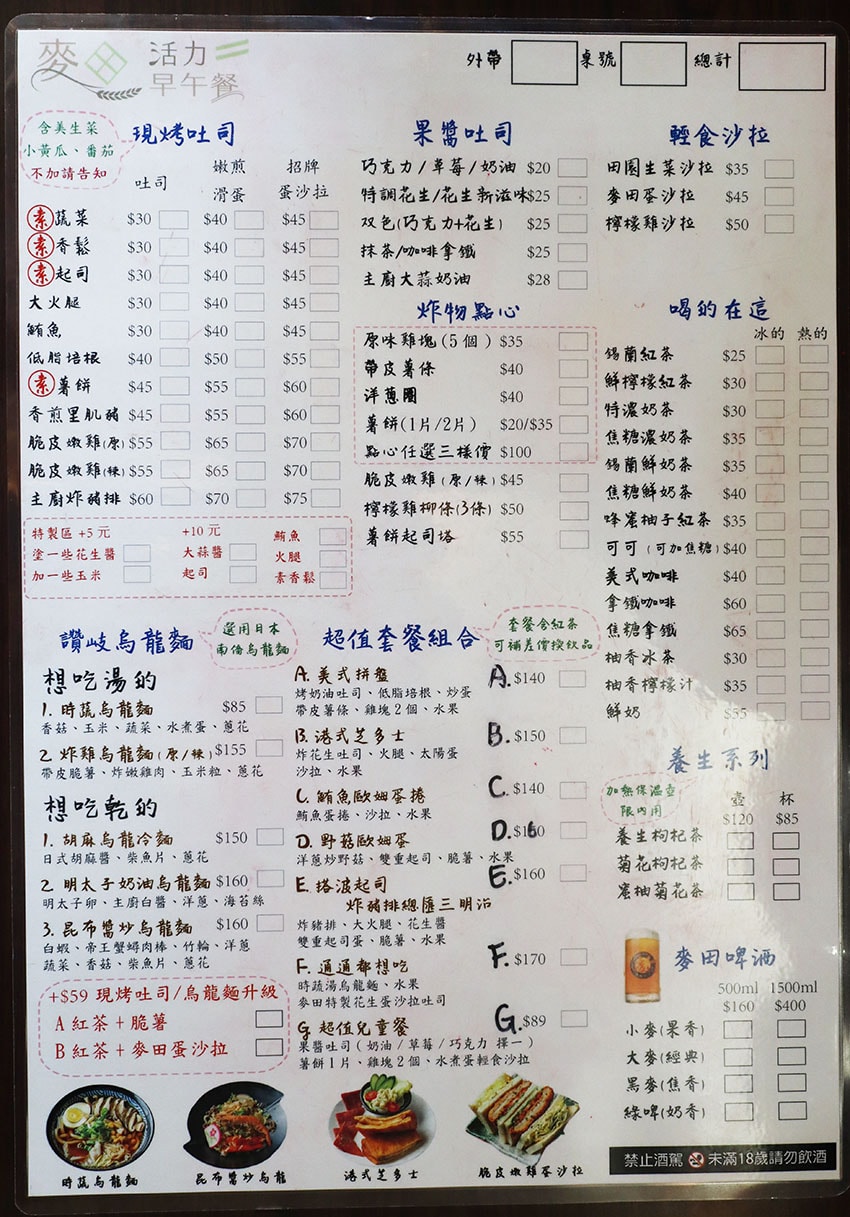 麥田 活力
早午餐
外帶 桌號 總計
含美生菜
小黃瓜、番茄
不加請告知
現烤吐司
吐司 嫩煎滑蛋 招牌蛋沙拉
素 蔬菜 $30 $40 $45
素 香鬆 $30 $40 $45
素 起司 $30 $40 $45
大火腿 $30 $40 $45
鮪魚 $30 $40 $45
低脂培根 $40 $50 $55
素 薯餅 $45 $55 $60
香煎里肌豬 $45 $55 $60
脆皮嫩雞(原) $55 $65 $70
脆皮嫩雞(辣) $55 $65 $70
主廚炸豬排 $60 $70 $75
特製區 +5 元 +10 元 鮪魚
塗一些花生醬 大蒜醬 火腿
加一些玉米 起司 素香鬆
果醬吐司
巧克力/草莓/奶油 $20
特調花生/花生新滋味 $25
双色(巧克力+花生) $25
抹茶/咖啡拿鐵 $25
主廚大蒜奶油 $28
炸物點心
原味雞塊(5個) $35
帶皮薯條 $40
洋蔥圈 $40
薯餅(1片/2片) $20/$35
點心任選三樣價 $100
脆皮嫩雞(原/辣) $45
檸檬雞柳條(3條) $50
薯餅起司塔 $55
輕食沙拉
田園生菜沙拉 $35
麥田蛋沙拉 $45
檸檬雞沙拉 $50
喝的在這
冰的 熱的
錫蘭紅茶 $25
鮮檸檬紅茶 $30
特濃奶茶 $30
焦糖濃奶茶 $35
錫蘭鮮奶茶 $35
焦糖鮮奶茶 $40
蜂蜜柚子紅茶 $35
可可(可加焦糖) $40
美式咖啡 $40
拿鐵咖啡 $60
焦糖拿鐵 $65
柚香冰茶 $30
柚香檸檬汁 $35
鮮奶 $55
讚岐烏龍麵
選用日本
南僑烏龍麵
想吃湯的
1. 時蔬烏龍麵 $85
香菇、玉米、蔬菜、水煮蛋、蔥花
2. 炸雞烏龍麵(原/辣) $155
帶皮脆薯、炸嫩雞肉、玉米粒、蔥花
想吃乾的
1. 胡麻烏龍冷麵 $150
日式胡麻醬、柴魚片、蔥花
2. 明太子奶油烏龍麵 $160
明太子卵、主廚白醬、洋蔥、海苔絲
3. 昆布醬炒烏龍麵 $160
白蝦、帝王蟹蟳肉棒、竹輪、洋蔥
蔬菜、香菇、柴魚片、蔥花
+$59 現烤吐司/烏龍麵升級
A 紅茶 + 脆薯
B 紅茶 + 麥田蛋沙拉
超值套餐組合
套餐含紅茶
可補差價換飲品
A. 美式拼盤 A. $140
烤奶油吐司、低脂培根、炒蛋
帶皮薯條、雞塊2個、水果
B. 港式芝多士 B. $150
炸花生吐司、火腿、太陽蛋
沙拉、水果
C. 鮪魚歐姆蛋捲 C. $140
鮪魚蛋捲、沙拉、水果
D. 野菇歐姆蛋 D. $160
洋蔥炒野菇、雙重起司、脆薯、水果
E. 搭波起司 E. $160
炸豬排總匯三明治
炸豬排、大火腿、花生醬
雙重起司蛋、脆薯、水果
F. 通通都想吃 F. $170
時蔬湯烏龍麵、水果
麥田特製花生蛋沙拉吐司
G. 超值兒童餐 G. $89
果醬吐司(奶油/草莓/巧克力 擇一)
薯餅1片、雞塊2個、水煮蛋輕食沙拉
養生系列
加熱保溫壺
限內用
壺 杯
$120 $85
養生枸杞茶
菊花枸杞茶
蜜柚菊花茶
麥田啤酒
500ml 1500ml
$160 $400
小麥(果香)
大麥(經典)
黑麥(焦香)
綠啤(奶香)
時蔬烏龍麵
昆布醬炒烏龍
港式芝多士
脆皮嫩雞蛋沙拉
禁止酒駕 未滿18歲請勿飲酒